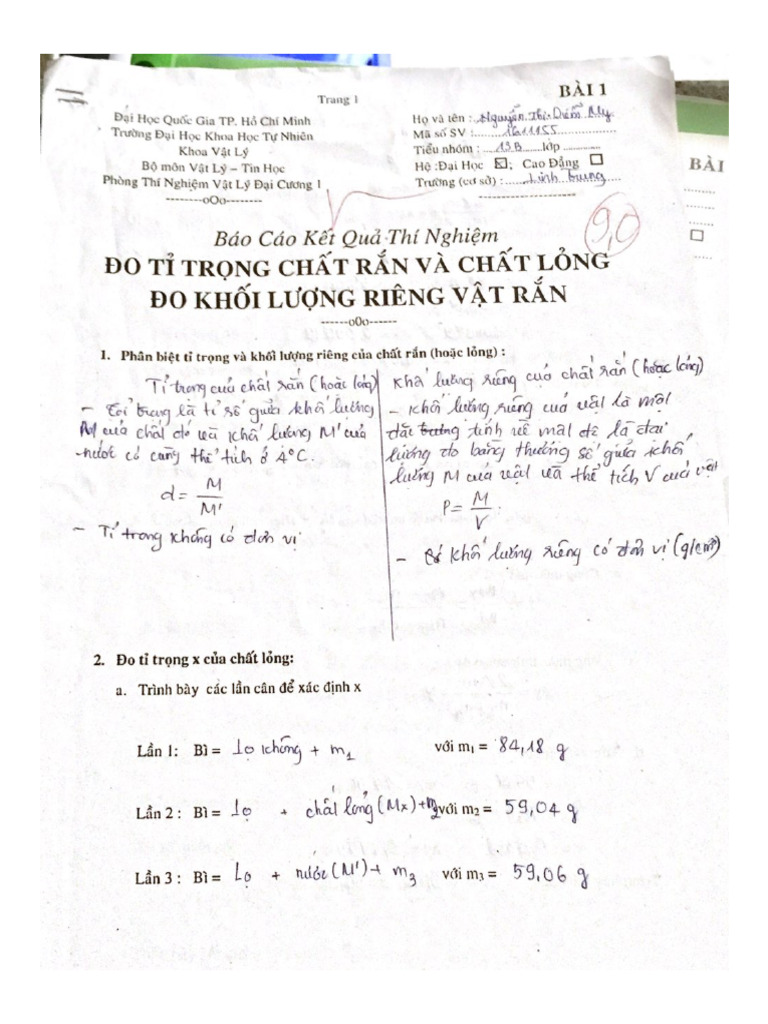 Trang 1
BÀI 1
Đại Học Quốc Gia TP. Hồ Chí Minh
Trường Đại Học Khoa Học Tự Nhiên
Khoa Vật Lý
Bộ môn Vật Lý – Tin Học
Phòng Thí Nghiệm Vật Lý Đại Cương 1
--------oOo--------
Họ và tên : Nguyễn Thị Diễm My
Mã số SV : 1611155
Tiểu nhóm : 13B lớp
Hệ :Đại Học ☒; Cao Đẳng ☐
Trường (cơ sở) : Linh Trung
BÀI
9,0
Báo Cáo Kết Quả Thí Nghiệm
ĐO TỈ TRỌNG CHẤT RẮN VÀ CHẤT LỎNG
ĐO KHỐI LƯỢNG RIÊNG VẬT RẮN
------o0o------
1. Phân biệt tỉ trọng và khối lượng riêng của chất rắn (hoặc lỏng) :
Tỉ trọng của chất rắn (hoặc lỏng)
- Tỉ trọng là tỉ số giữa khối lượng
M của chất đó và khối lượng M' của
nước có cùng thể tích ở 4°C.
d = M/M'
- Tỉ trọng không có đơn vị
Khối lượng riêng của chất rắn (hoặc lỏng)
- Khối lượng riêng của vật là một
đặc tính về mật độ là đại
lượng đo bằng thương số giữa khối
lượng M của vật và thể tích V của vật
P = M/V
- khối lượng riêng có đơn vị (g/cm³)
2. Đo tỉ trọng x của chất lỏng:
a. Trình bày các lần cân để xác định x
Lần 1: Bì = Lọ không + m₁ với m₁ = 84,18 g
Lần 2 : Bì = Lọ + chất lỏng (Mx) + m₂ với m₂ = 59,04 g
Lần 3 : Bì = Lọ + nước (M') + m₃ với m₃ = 59,06 g